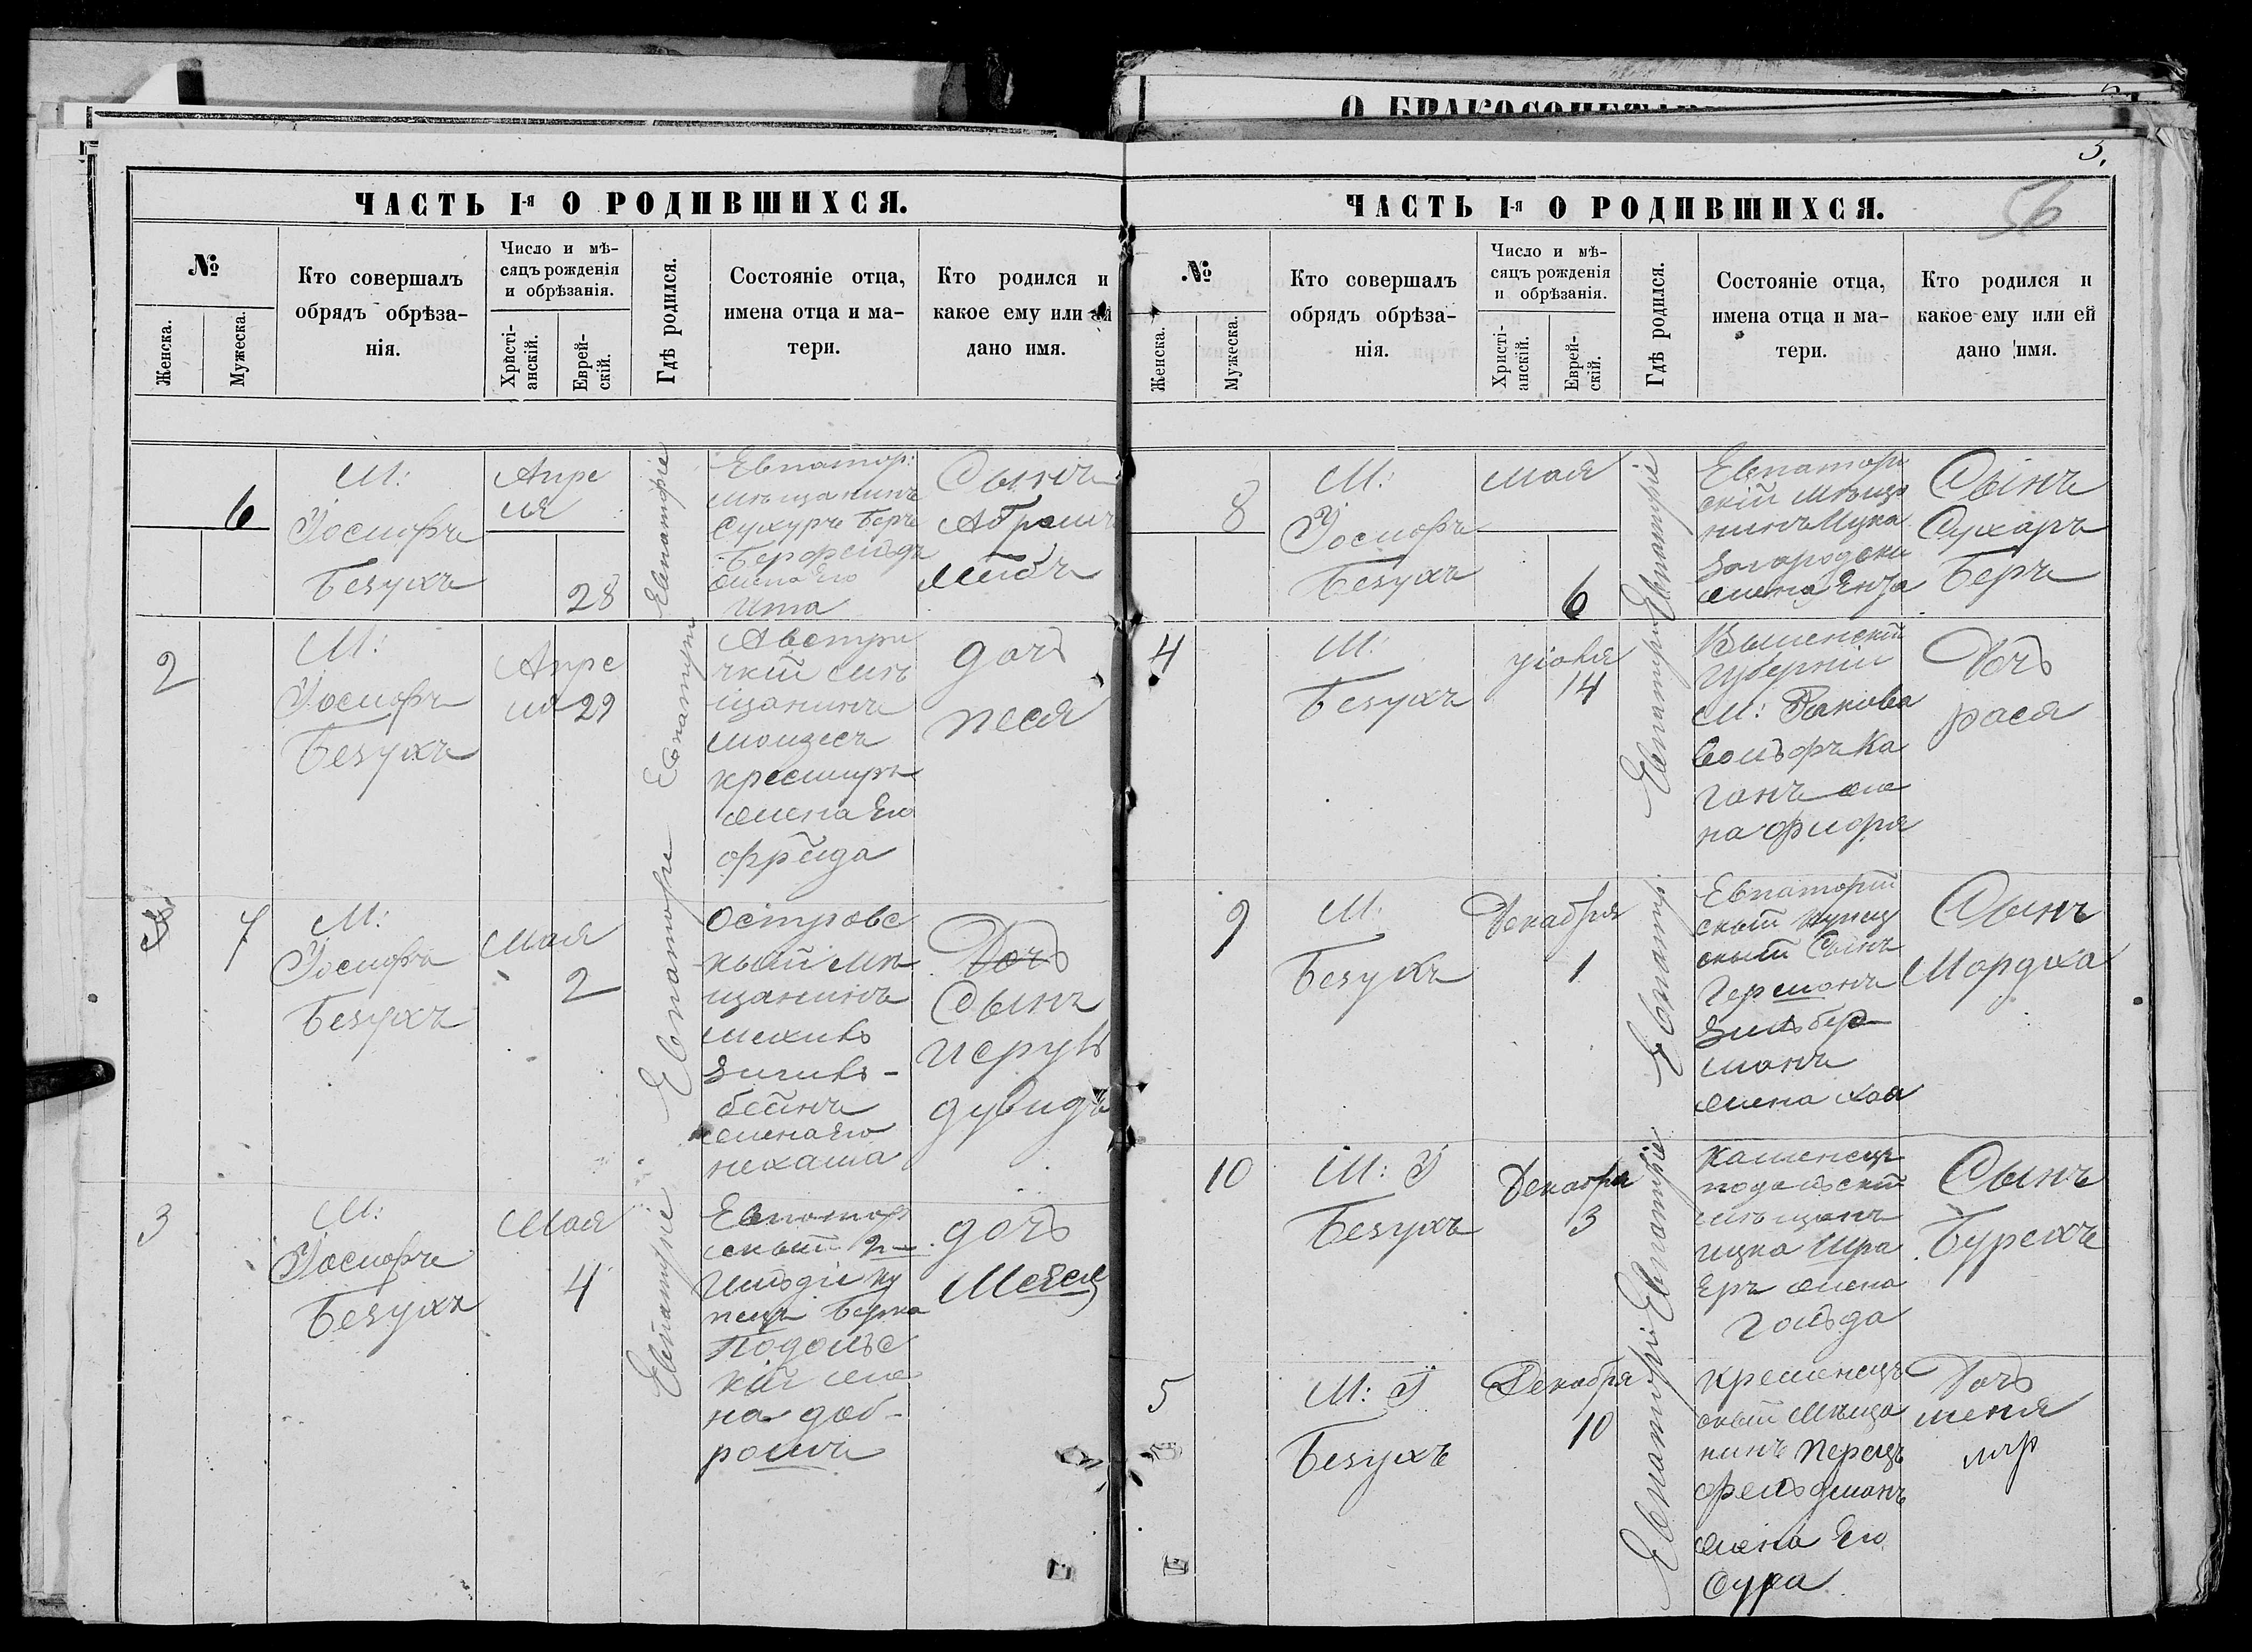 О БРАКОСОЧЕТАН
ЧАСТЬ I-я О РОДИВШИХСЯ.
№
Женска.
Мужеска.
Кто совершалъ
обрядъ обрѣза-
нія.
Число и мѣ-
сяцъ рожденія
и обрѣзанія.
Христі-
анскій.
Еврей-
скій.
Гдѣ родился.
Состояніе отца,
имена отца и ма-
тери.
Кто родился и
какое ему или ей
дано имя.
6
М:
Іосифъ
Безухъ
Апре
ля
28
Евпаторіе
Евпатор:
мѣщанинъ
Сухуръ Беръ
жена его
Ита
Сынъ
Абрамъ
Лейбъ
2
М:
Іосифъ
Безухъ
Апре
ля 29
Евпатори
Австри
ский мѣ
щанинъ
жена его
фрейда
дочь
песя
3
7
М:
Іосифъ
Безухъ
Мая
2
Евпаторіе
Островс
кый мѣ
щанинъ
бейнъ
жена его
нехама
Дочь
Сынъ
Исруль
дувидъ
3
М:
Іосифъ
Безухъ
Мая
4
Евпаторіе
Евпатор
скый 2
гильдіи ку
пецъ Берка
Подольс
кій же
на доб-
рошъ
дочь
5.
56
ЧАСТЬ I-я О РОДИВШИХСЯ.
№
Женска.
Мужеска.
Кто совершалъ
обрядъ обрѣза-
нія.
Число и мѣ-
сяцъ рожденія
и обрѣзанія.
Христі-
анскій.
Еврей-
скій.
Гдѣ родился.
Состояніе отца,
имена отца и ма-
тери.
Кто родился и
какое ему или ей
дано имя.
8
М:
Іосифъ
Безухъ
мая
6
Евпаторіе
Евпатори
скій мѣща
нинъ Ицка
жена Енза
Сынъ
Сухаръ
Беръ
4
М:
Безухъ
Іюня
14
Евпатори
Виленский
губерніи
М: Ракова
Вольфъ Ка
ганъ же
на
Дочь
рася
9
М:
Безухъ
Декабря
1
Евпатор:
Евпаторий
скый купец
скый Сынъ
Германъ
Зильбер
манъ
жена хая
Сынъ
Мордха
10
М: І
Безухъ
Декабря
3
Евпаторіе
Каменецъ
подольский
мѣщанъ
ицка Шра
еръ жена
Гольда
Сынъ
Бурехъ
5
М: І
Безухъ
Декабря
10
Евпаторіе
Кременецъ
скый мѣща
нинъ Перецъ
фельдманъ
жена его
Сура
Дочь